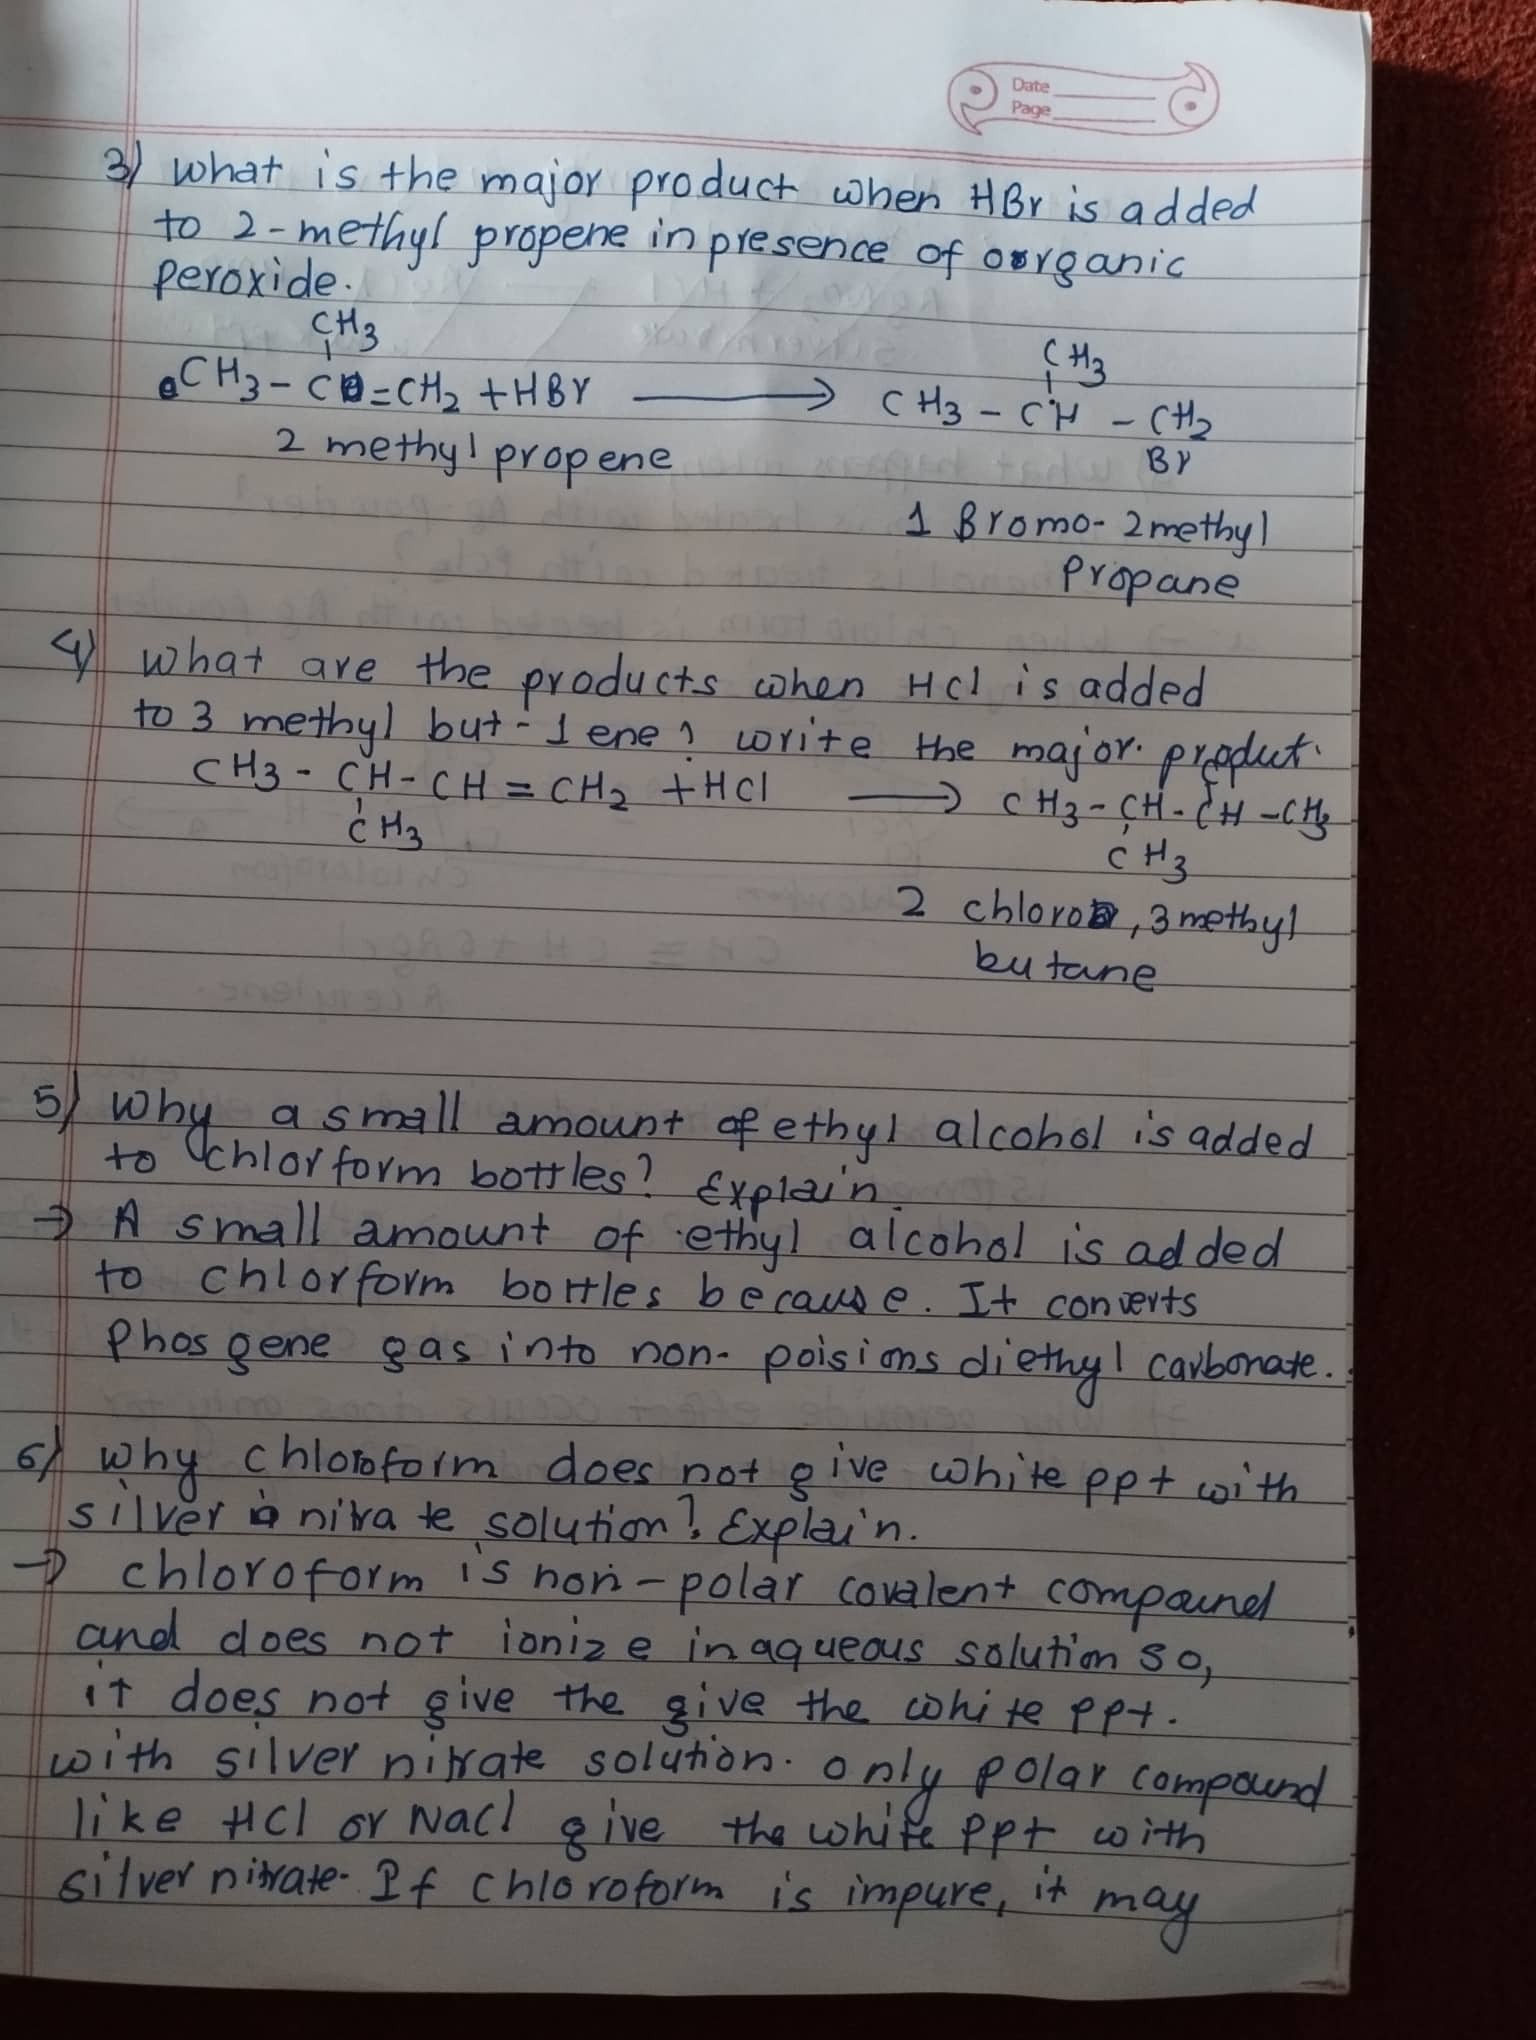 Date
Page
3) what is the major product when HBr is added
to 2-methyl propene in presence of oorganic
peroxide.
CH3
CH3
CH3 - C = CH2 + HBr ⟶ CH3 - CH - CH2
2 methyl propene
Br
1 Bromo- 2methyl
Propane
4) what are the products when HCl is added
to 3 methyl but-1 ene? write the major. product.
CH3 - CH - CH = CH2 + HCl ⟶ CH3 - CH - CH - CH3
CH3
CH3
2 chloro, 3 methyl
butane
5) Why a small amount of ethyl alcohol is added
to chlorform bottles? Explain.
→ A small amount of ethyl alcohol is added
to chlorform bottles because. It converts
Phosgene gas into non- poisions diethyl carbonate.
6) why chloroform does not give white ppt with
silver nitrate solution? Explain.
→ chloroform is non-polar covalent compound
and does not ionize in aqueous solution so,
it does not give the give the white ppt.
with silver nitrate solution. only polar compound
like HCl or NaCl give the white ppt with
silver nitrate. If chloroform is impure, it may